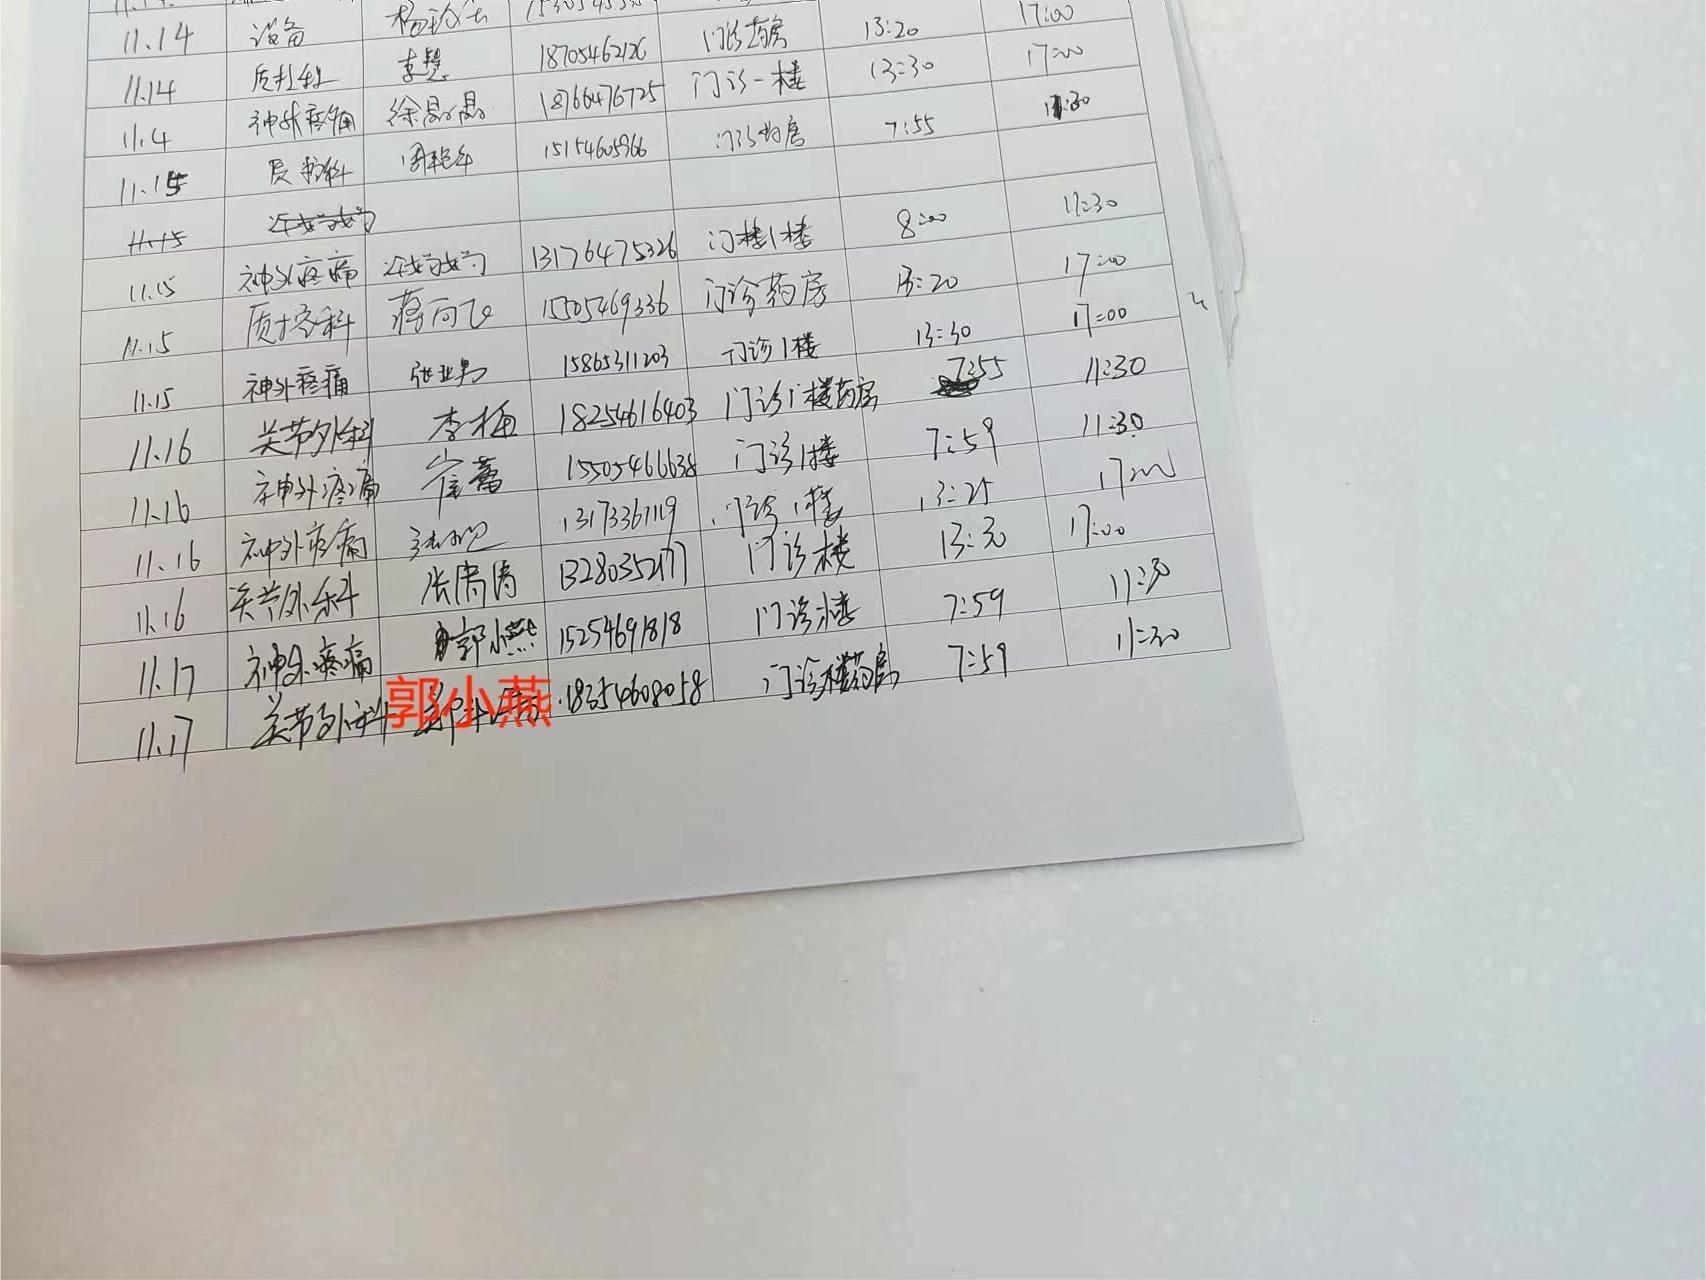 11.14 设备 17:00
11.14 质控科 李慧 18705462126 门诊药房 13:20 17:00
11.4 神外疼痛 徐晶晶 18766476725 门诊一楼 13:30
11.15 质控科 15154605966 门诊药房 7:55 11:30
11.15
11.15 神外疼痛 13176475326 门楼1楼 8:00 11:30
11.15 质控科 蒋向飞 15505469336 门诊药房 13:20 17:00
11.15 神外疼痛 张亚男 15865311203 门诊1楼 13:30 17:00
11.16 关节外科 李梅 18254616403 门诊1楼药房 7:55 11:30
11.16 神外疼痛 崔蕾 15505466638 门诊1楼 7:59 11:30
11.16 神外疼痛 13173361119 门诊1楼 13:25 17:00
11.16 关节外科 张清清 13280352177 门诊楼 13:30 17:00
11.17 神外疼痛 郭小燕 15254691818 门诊1楼 7:59 11:30
11.17 关节外科 18354608058 门诊1楼药房 7:59 11:30
郭小燕